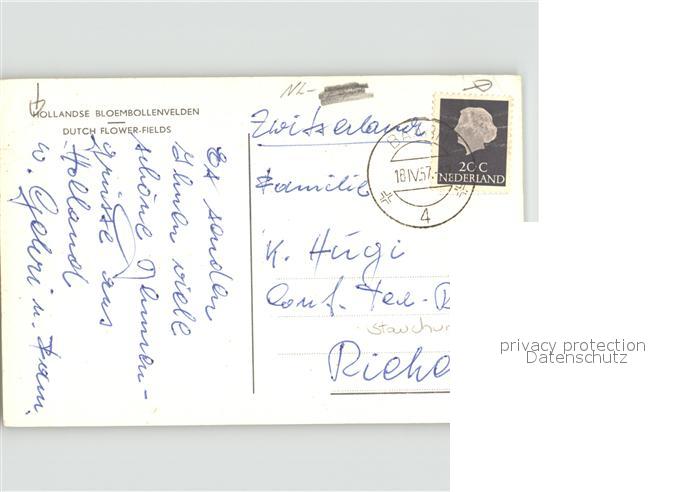 NL-
HOLLANDSE BLOEMBOLLENVELDEN
DUTCH FLOWER-FIELDS
Es senden
Ihnen viele
schöne
grüsse aus
Holland
W. Gehri u. Fam.
Zwitserland
Familie
K. Hügi
Conf. Tea-R
Stauchun
Riehe
18 IV.57.
4
20 C
NEDERLAND
privacy protection
Datenschutz